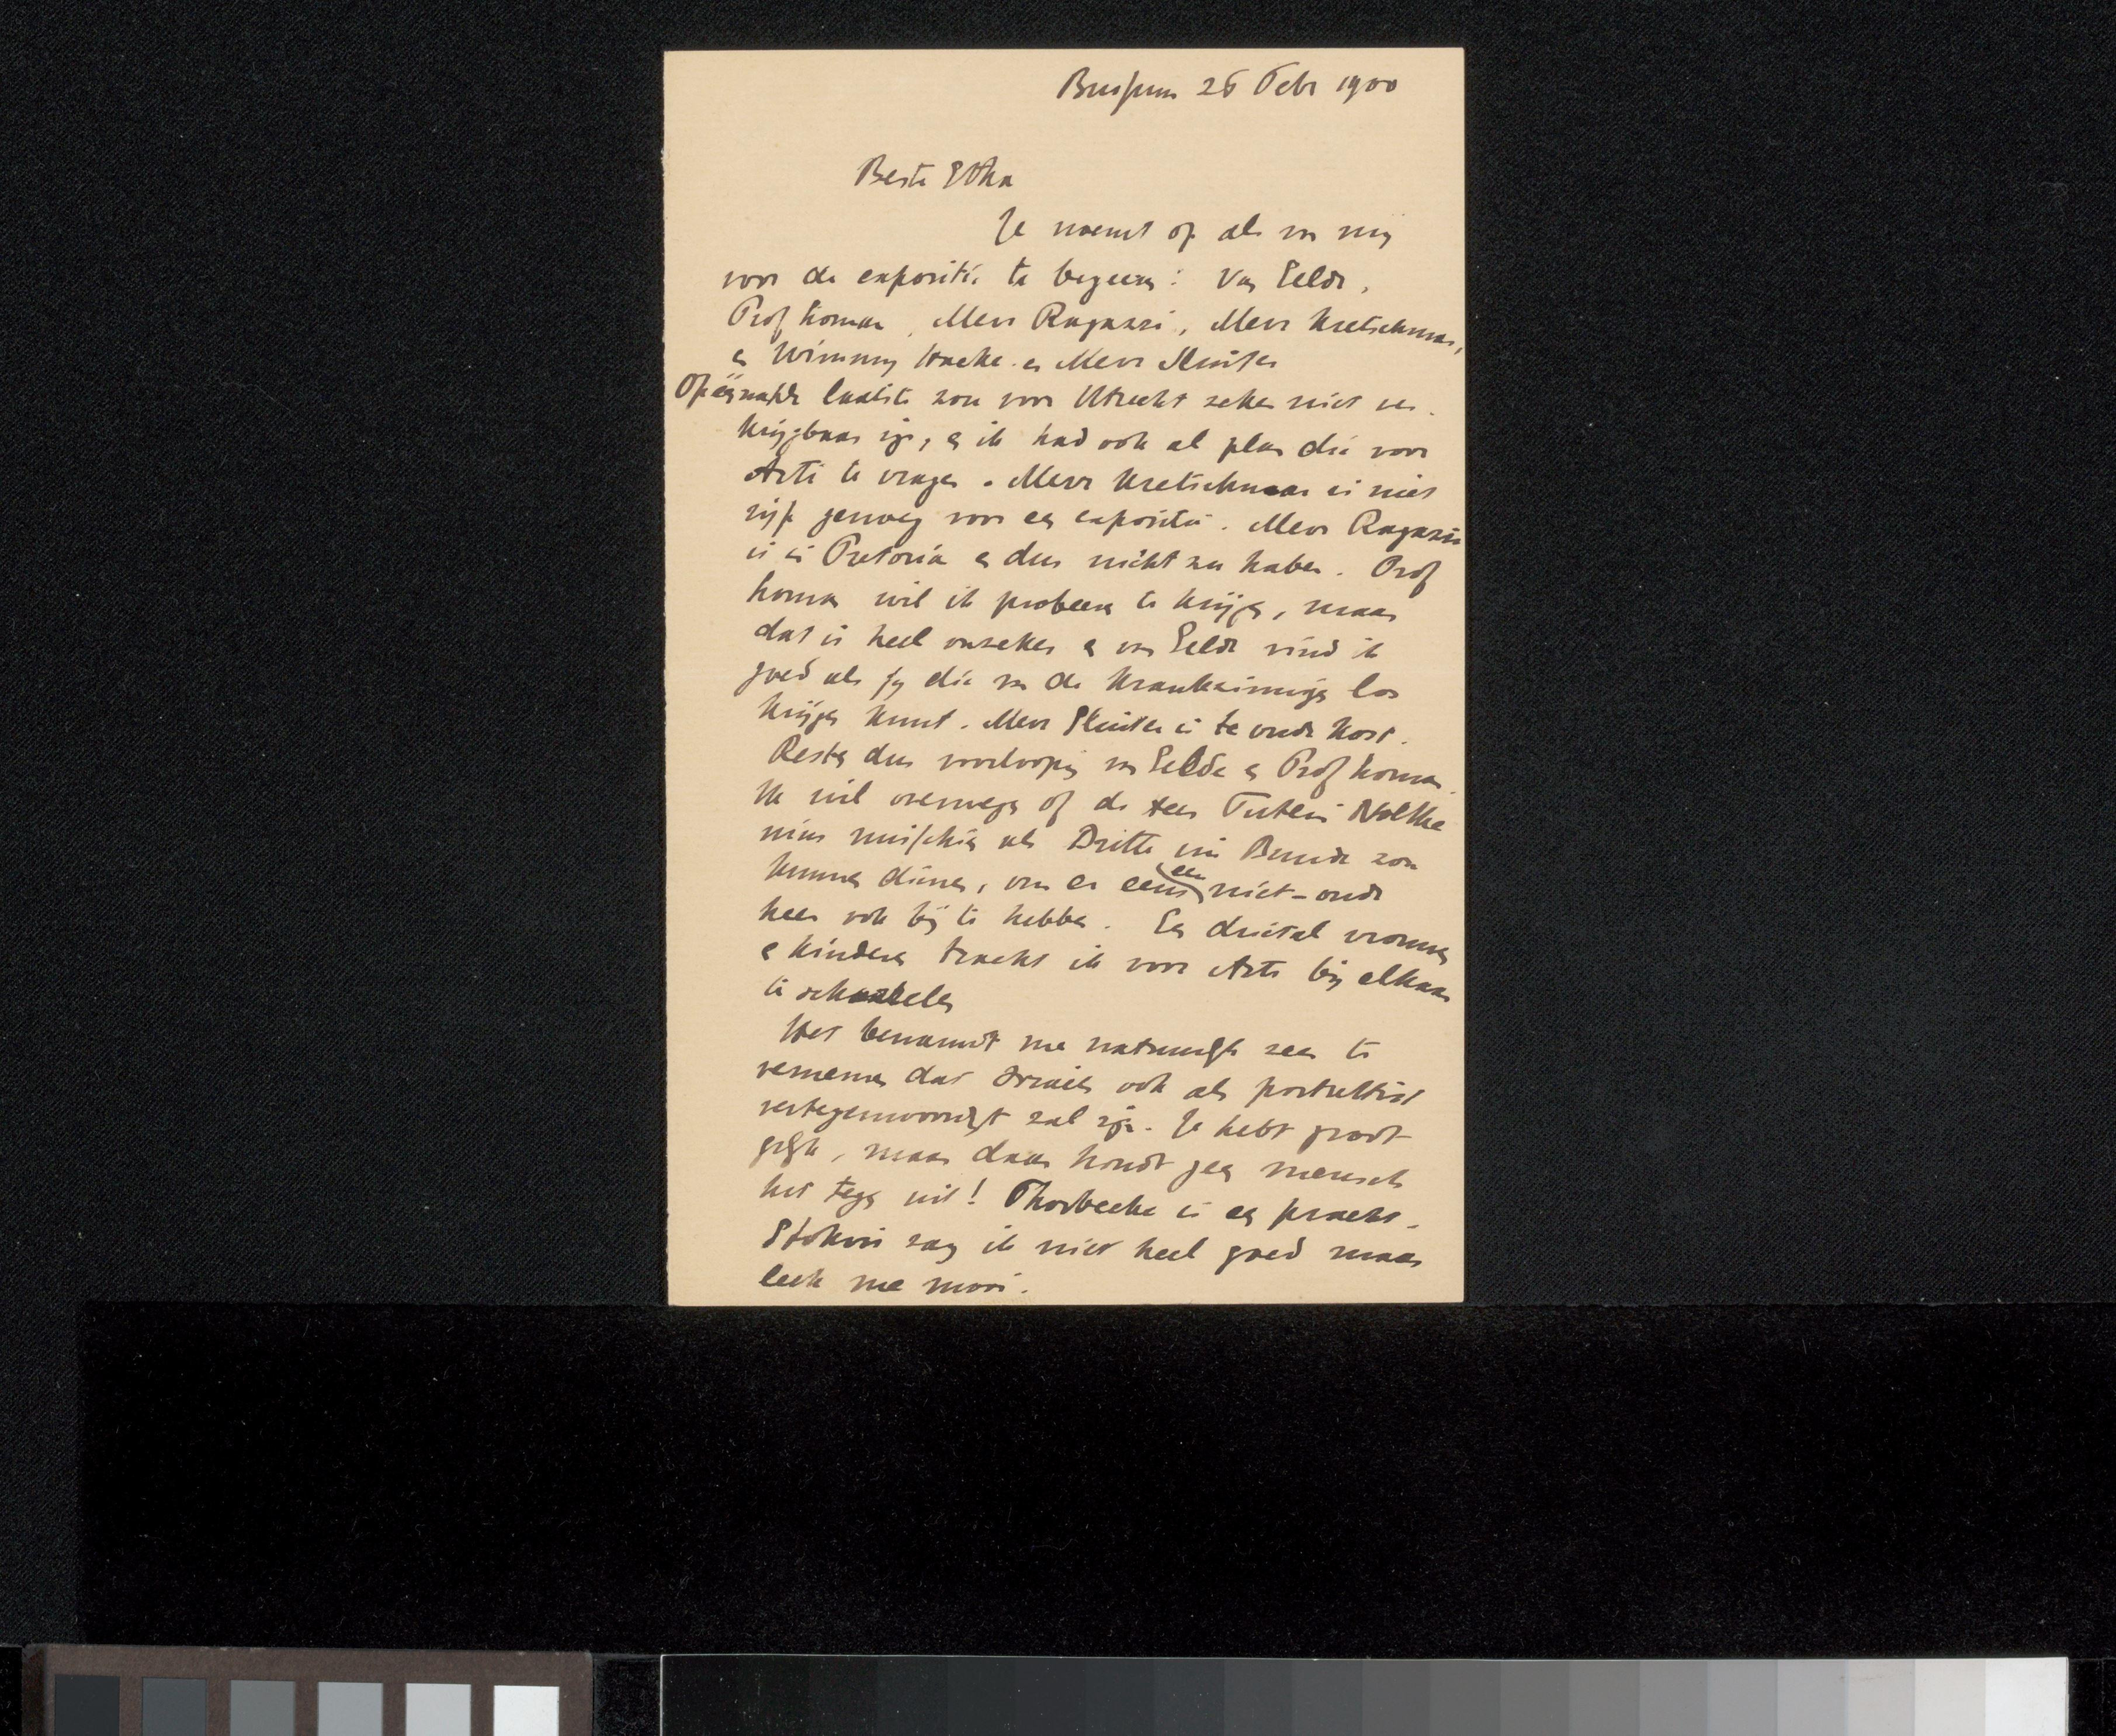 Bussum 26 Febr 1900
Beste Etha
Je noemt op als van mij
voor de expositie te begeeren: Van Eelde,
Prof Koman, Mevr Ragazzi, Mevr Kretschmar,
en Wimmy en Mevr Sluiter
laatste zou voor Utrecht zeker niet ver-
krijgbaar zijn, en ik had ook al plan die voor
Arti te vragen. Mevr Kretschmar is niet
rijp genoeg voor een expositie. Mevr Ragazzi
is in Pretoria en dus nicht zu haben. Prof
Koman wil ik probeeren te krijgen, maar
dat is heel onzeker en van Eelde vind ik
goed als jij die van de krankzinnigen los
krijgen kunt. Mevr Sluiter is te oude kost.
Resten dus voorloopig van Eelde en Prof Koman.
Ik wil overwegen of de heer Tutein Nolthe
nius misschien als Dritte im Bunde zou
kunnen dienen, om er eens een niet-oude
heer ook bij te hebben. Een drietal vrouwen
en kinderen tracht ik voor Arti bij elkaar
te scharrelen
Het benauwt me natuurlijk zeer te
vernemen dat Israels ook als portrettist
vertegenwoordigt zal zijn. Je hebt groot
gelijk, maar daar houdt geen mensch
het tegen uit! Thorbecke is een pracht.
Stokvis zag ik niet heel goed maar
leek me mooi.